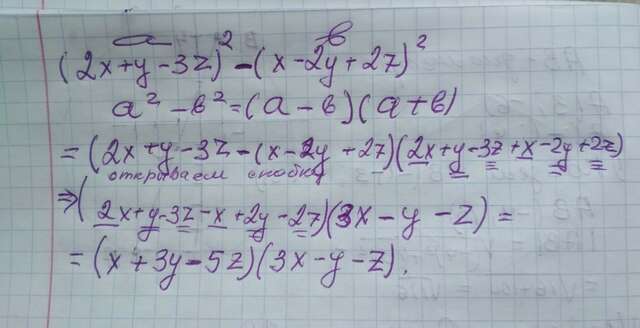 a в
(2x+y-3z)²-(x-2y+2z)²
a²-в²=(a-в)(a+в)
=(2x+y-3z-(x-2y+2z)(2x+y-3z+x-2y+2z)
открываем скобку
⇒(2x+y-3z-x+2y-2z)(3x-y-z)=
=(x+3y-5z)(3x-y-z).